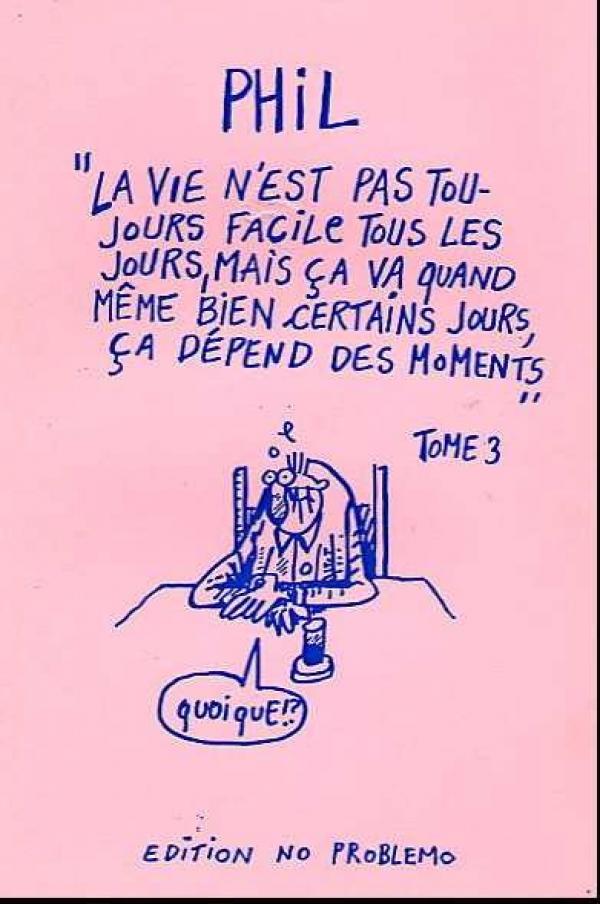 PHiL
"LA ViE N'EST PAS TOU-
JOURS FACiLe TOUS LES
JOURS, MAiS ÇA VA QUAND
MÊME BiEN CERTAiNS JOURS,
ÇA DÉPEND DES MoMENTS
"
TOME 3
QUOiQUE!?
EDiTiON NO PROBLEMO